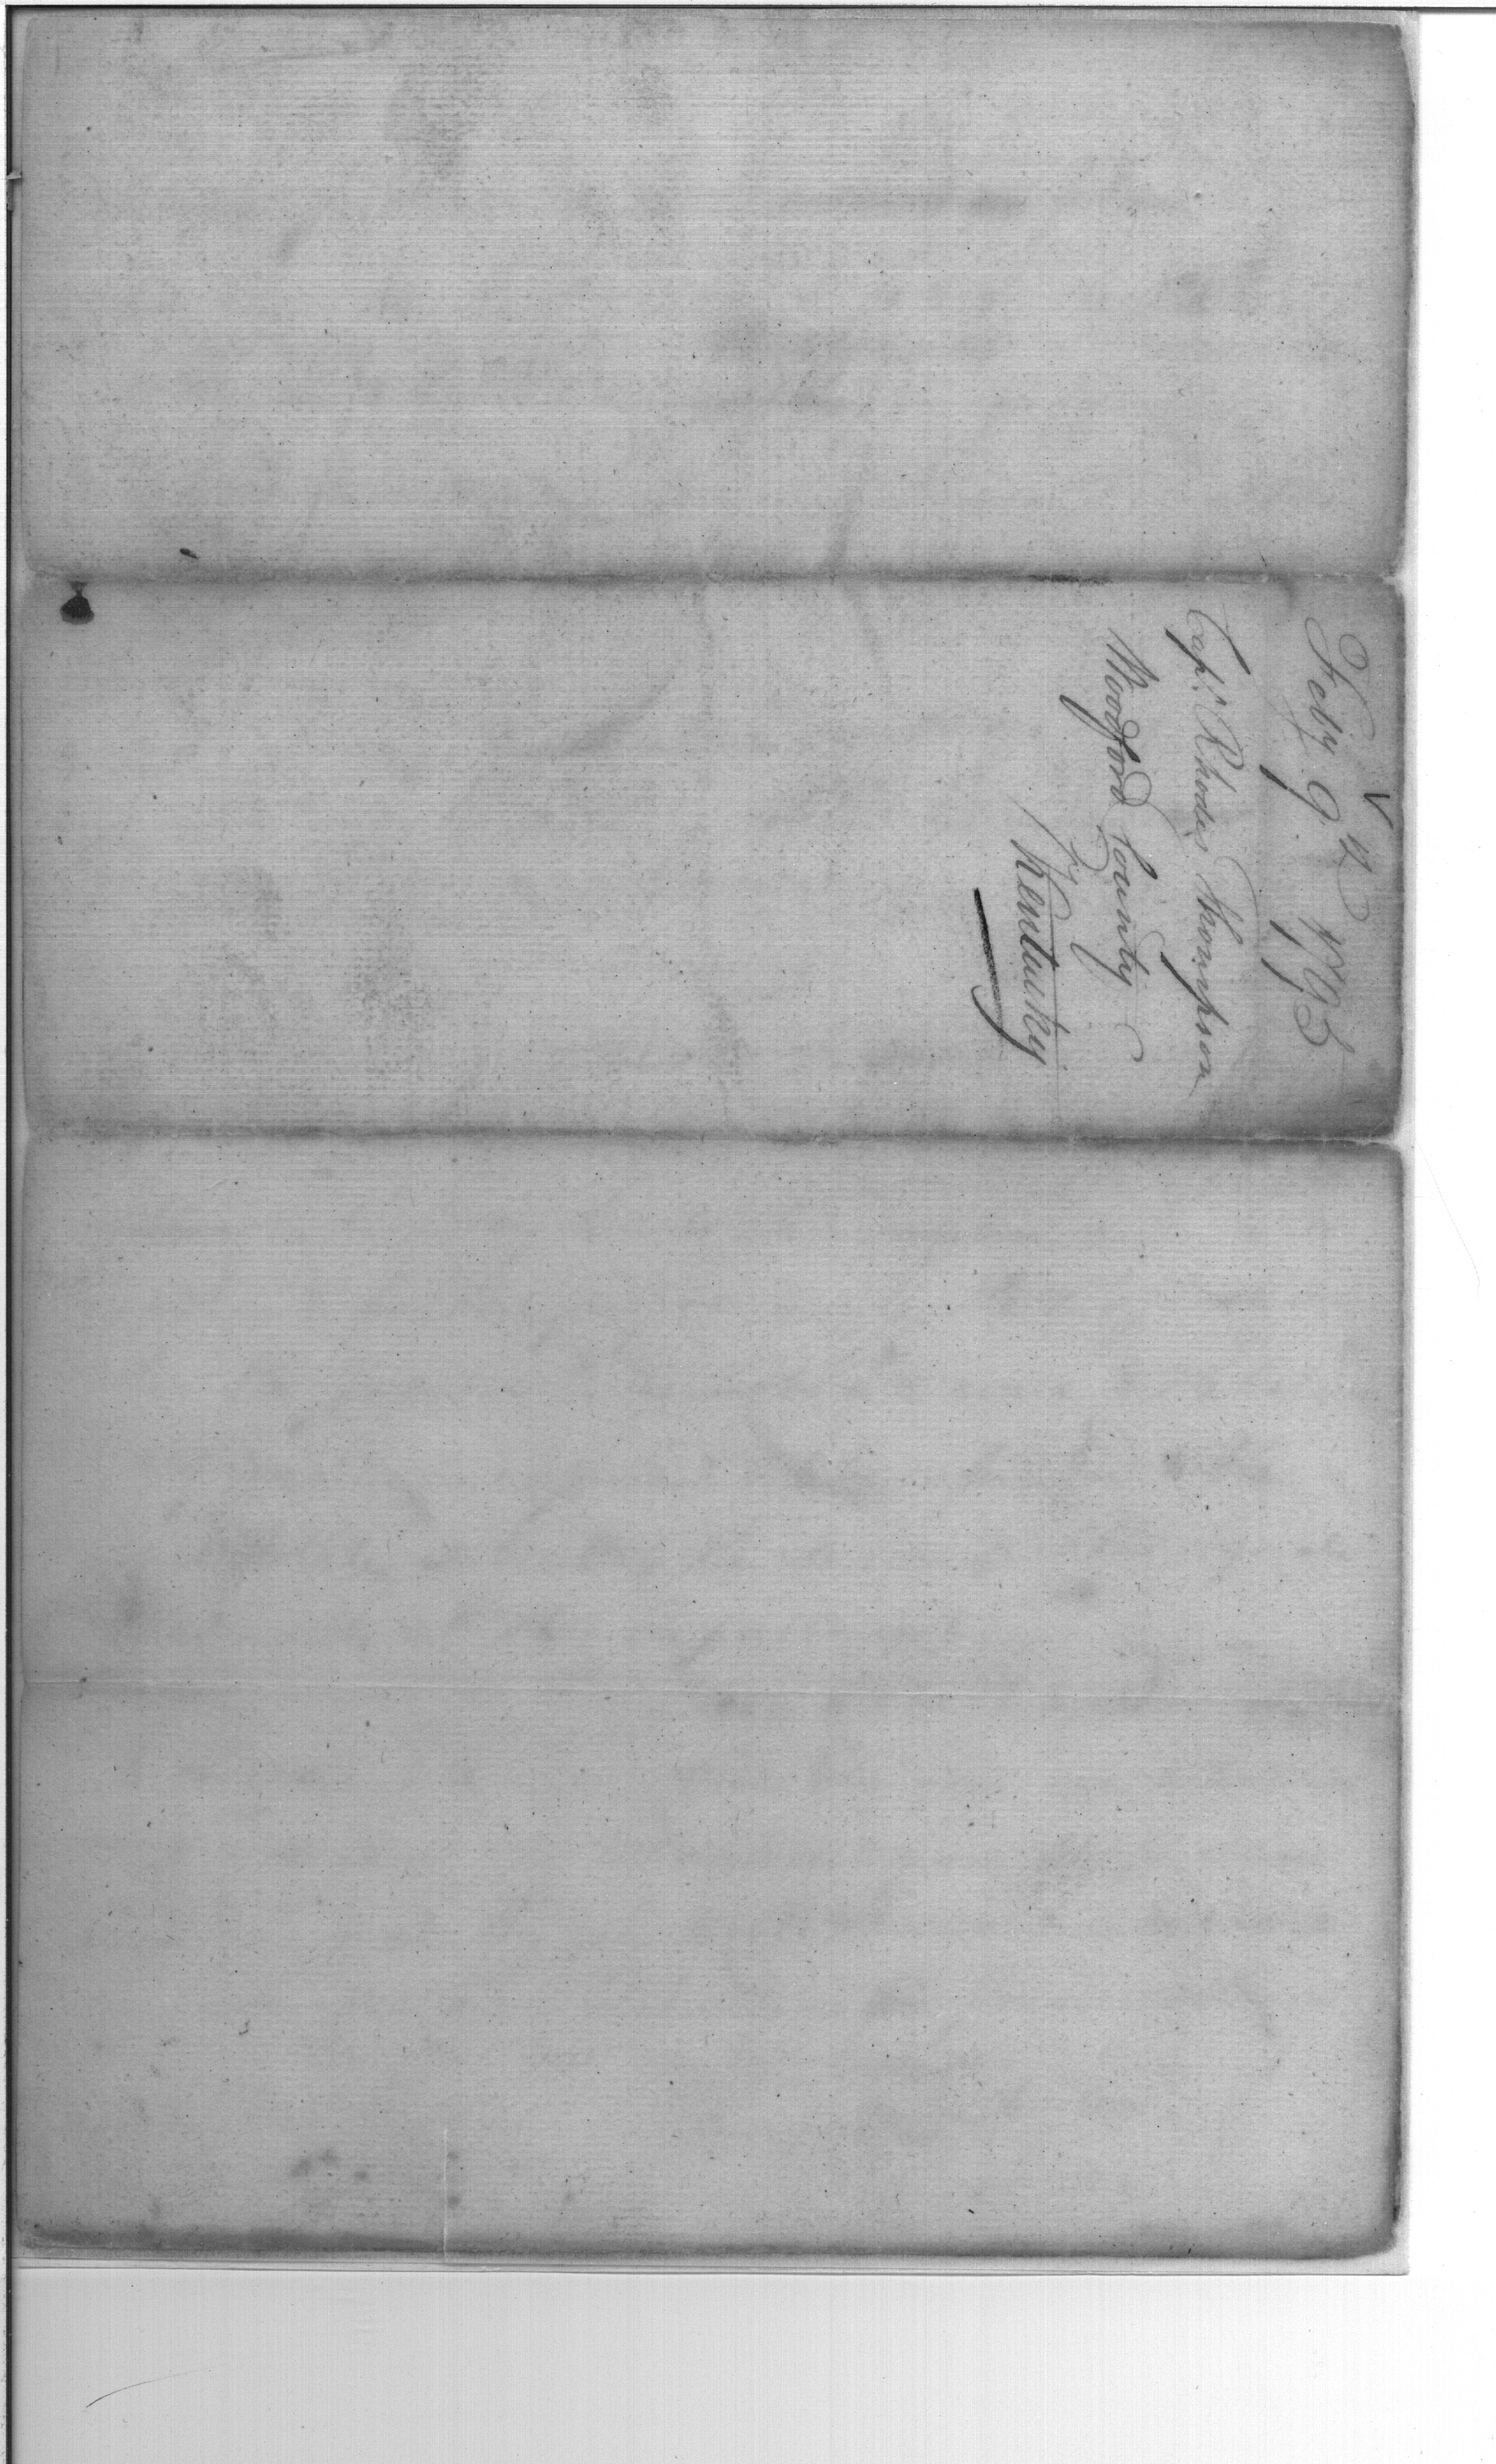 Feby. 9. 1795
Capt. Rhodes Thompson
Woodford County
Kentucky